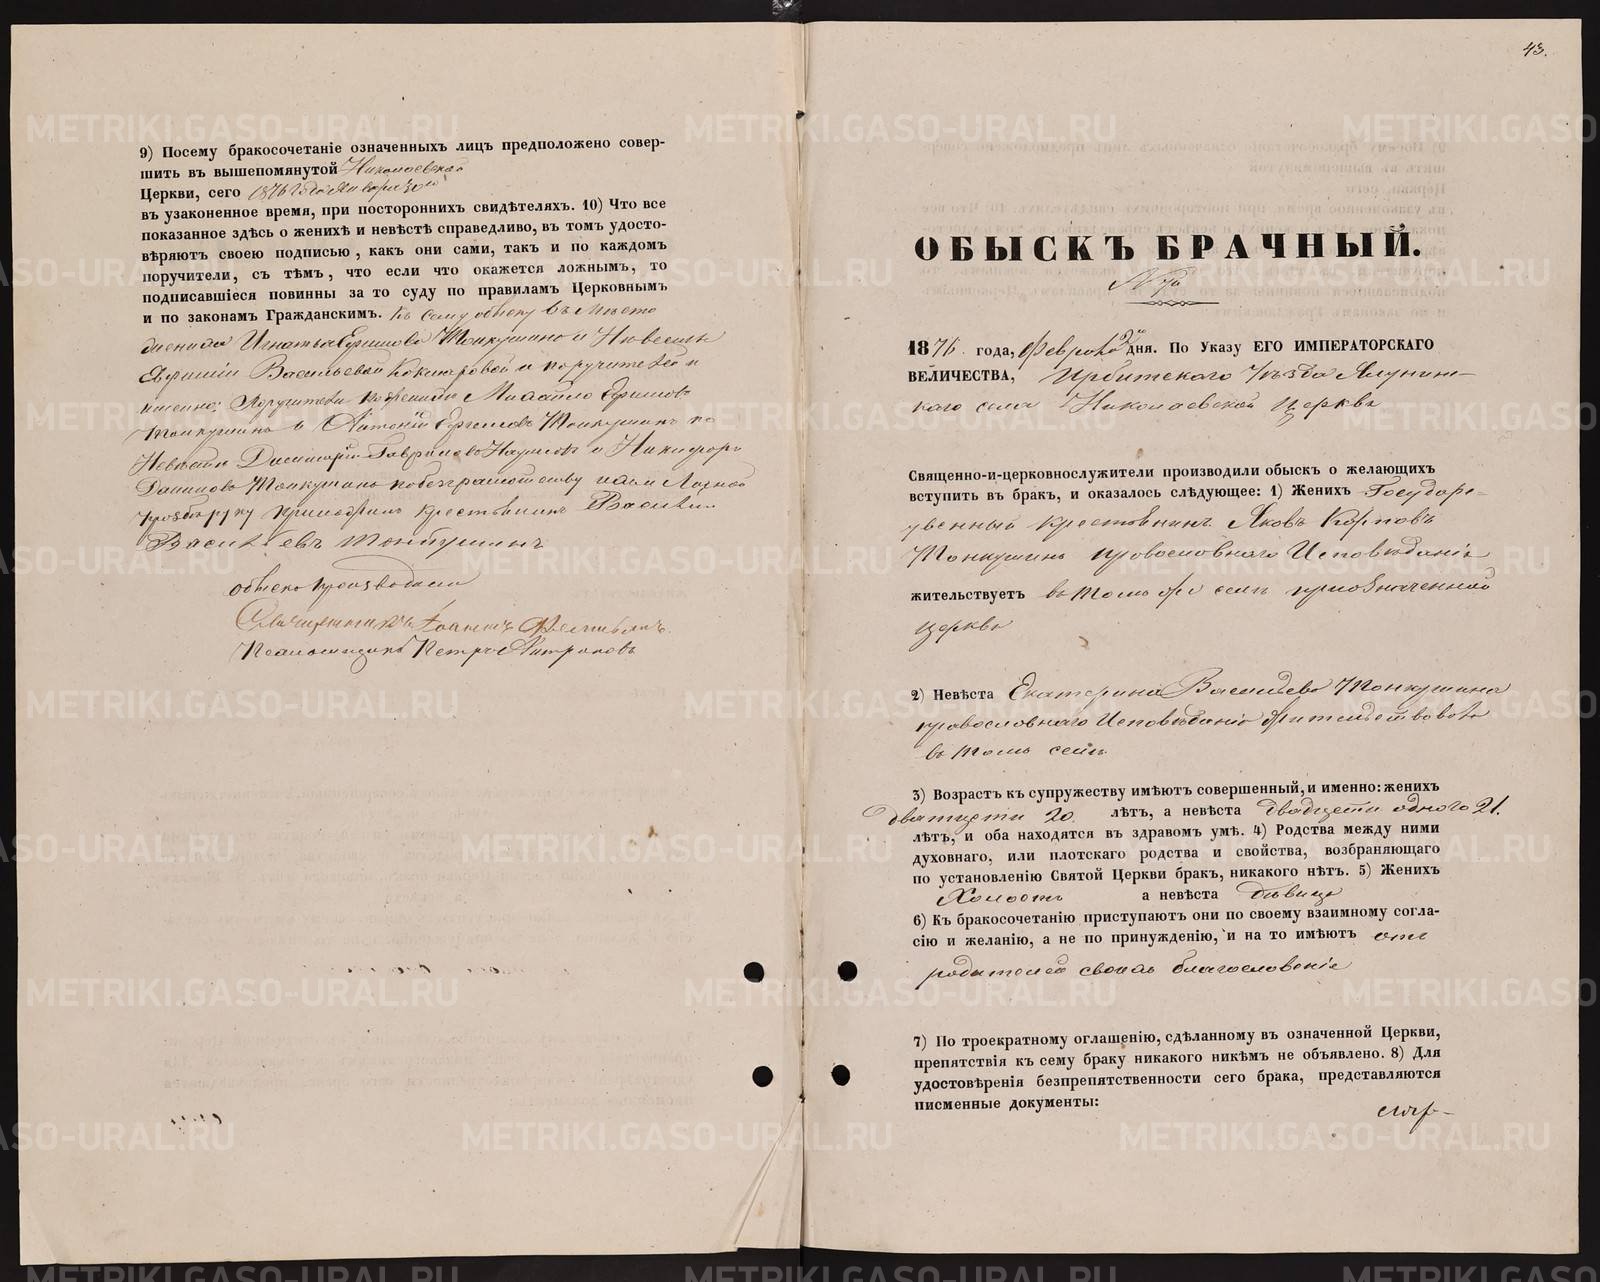 9) Посему бракосочетаніе означенныхъ лицъ предположено совер-
шить въ вышепомянутой Николаевской
Церкви, сего 1876 года Января
въ узаконенное время, при постороннихъ свидѣтеляхъ. 10) Что все
показанное здѣсь о женихѣ и невѣстѣ справедливо, въ томъ удосто-
вѣряютъ своею подписью, какъ они сами, такъ и по каждомъ
поручители, съ тѣмъ, что если что окажется ложнымъ, то
подписавшіеся повинны за то суду по правиламъ Церковнымъ
и по законамъ Гражданскимъ. Къ сему обыску вместо
Игнатья Ефимова Тонкушина и Невесты
Евфиміи Васильевой и поручителей
именно: Поручители по женихе Михайло Ефимовъ
Тонкушинъ и Антоній Ефимовъ Тонкушинъ по
Невѣсте Димитрій Гавриловъ Наумовъ и Никифоръ
Даниловъ Тонкушинъ по безграмотству ихъ личной
прозбы руку приложилъ крестьянинъ Василій
Васильевъ Тонкушинъ
обыскъ производили
Священникъ Іоаннъ
Псаломщикъ Петръ
43.
ОБЫСКЪ БРАЧНЫЙ.
N 7й
1876 года, Февраля дня. По Указу ЕГО ИМПЕРАТОРСКАГО
ВЕЛИЧЕСТВА, Ирбитскаго Уѣзда Ялунин-
скаго села Николаевской церкви
Священно-и-церковнослужители производили обыскъ о желающихъ
вступить въ бракъ, и оказалось слѣдующее: 1) Женихъ Государс-
твенный крестьянинъ Яковъ Карповъ
Тонкушинъ православнаго Исповѣданія
жительствуетъ въ томъ же селѣ при означенной
церкви
2) Невѣста Екатерина Васильева Тонкушина
православнаго Исповѣданія жительствовала
въ томъ селѣ
3) Возрастъ къ супружеству имѣютъ совершенный, и именно: женихъ
дватцети 20. лѣтъ, а невѣста двадцети одного 21.
лѣтъ, и оба находятся въ здравомъ умѣ. 4) Родства между ними
духовнаго, или плотскаго родства и свойства, возбраняющаго
по установленію Святой Церкви бракъ, никакого нѣтъ. 5) Женихъ
Холостъ а невѣста дѣвица
6) Къ бракосочетанію приступаютъ они по своему взаимному согла-
сію и желанію, а не по принужденію, и на то имѣютъ отъ
родителей своихъ благословеніе
7) По троекратному оглашенію, сдѣланному въ означенной Церкви,
препятствія къ сему браку никакого никѣмъ не объявлено. 8) Для
удостовѣренія безпрепятственности сего брака, представляются
писменные документы:
METRIKI.GASO-URAL.RU